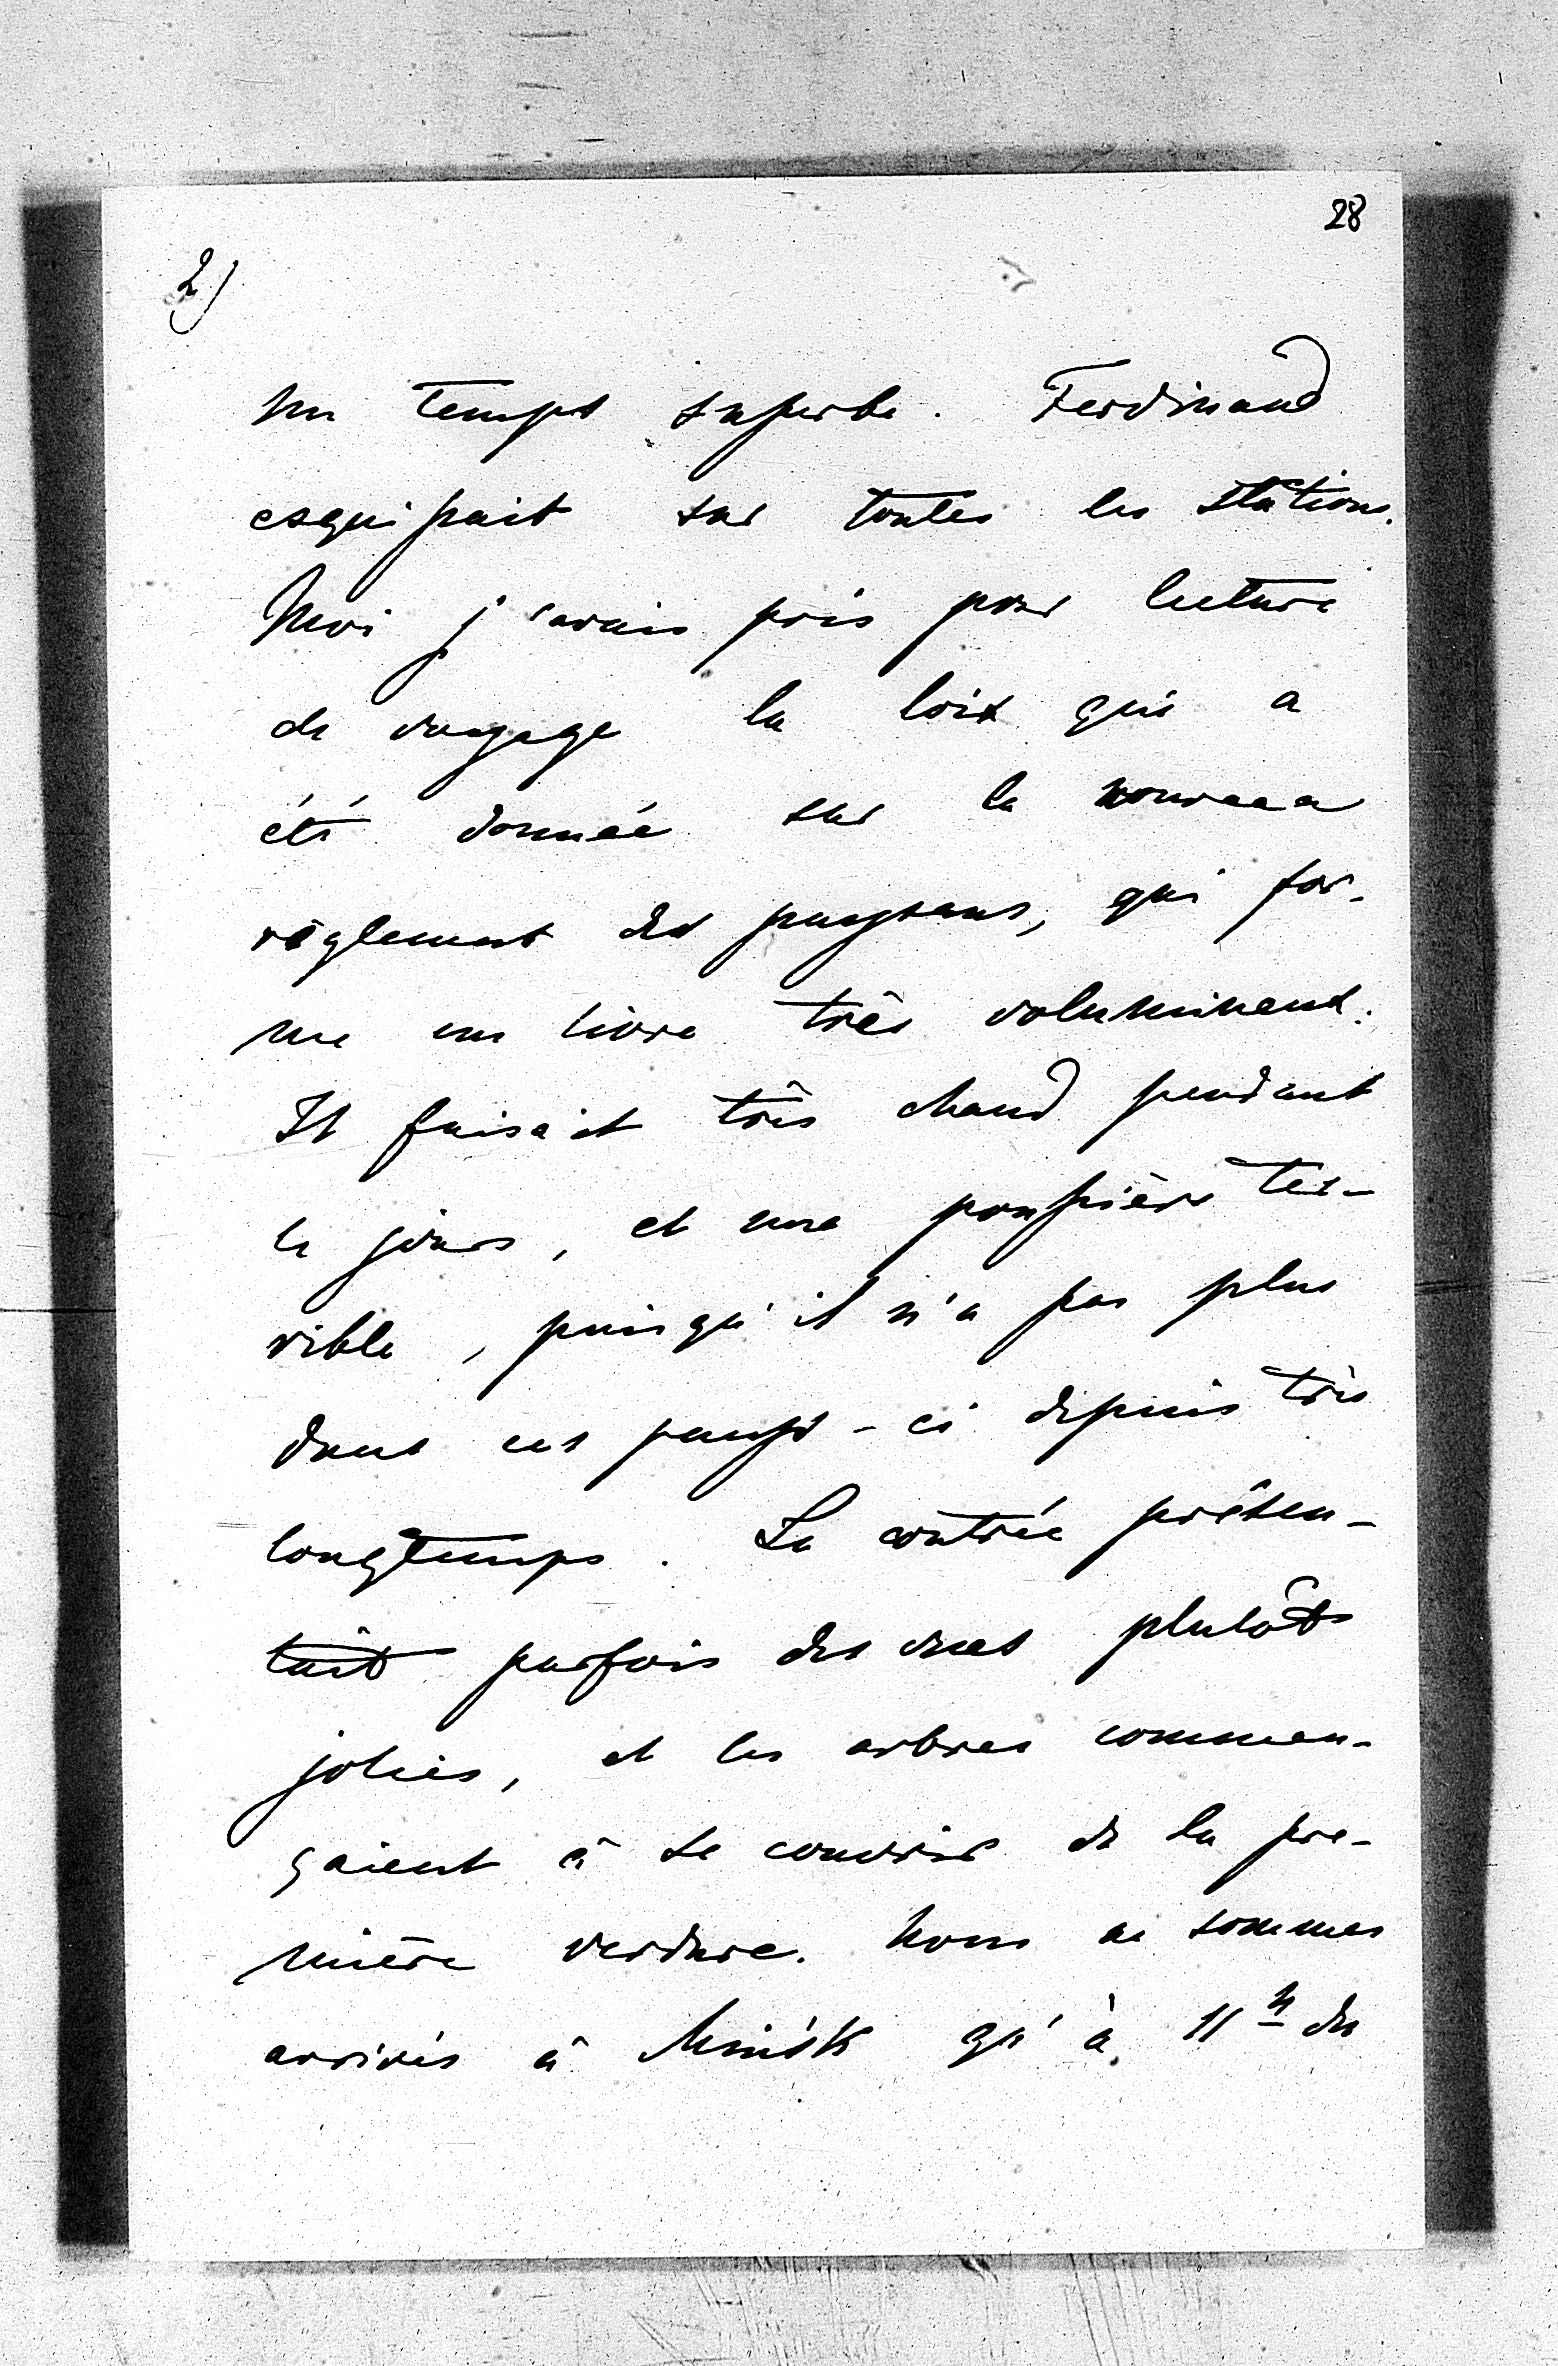 28
2)
un temps superbe. Ferdinand
esquipait sur toutes les stations.
Moi j'avais pris pour lecture
de voyage la loix qui a
été donnée sur le nouveau
règlement des paysans, qui for-
me un livre très volumineux.
Il faisait très chaud pendant
le jours, et une poussière ter-
rible, puisqu'il n'a pas plus
dans ces pays-ci depuis très
longtemps. La contrée présen-
tait parfois des vues plutôt
jolies, et les arbres commen-
çaient à se couvrir de la pre-
mière verdure. Nous ne sommes
arrivés à Minsk qu'à 11 h du